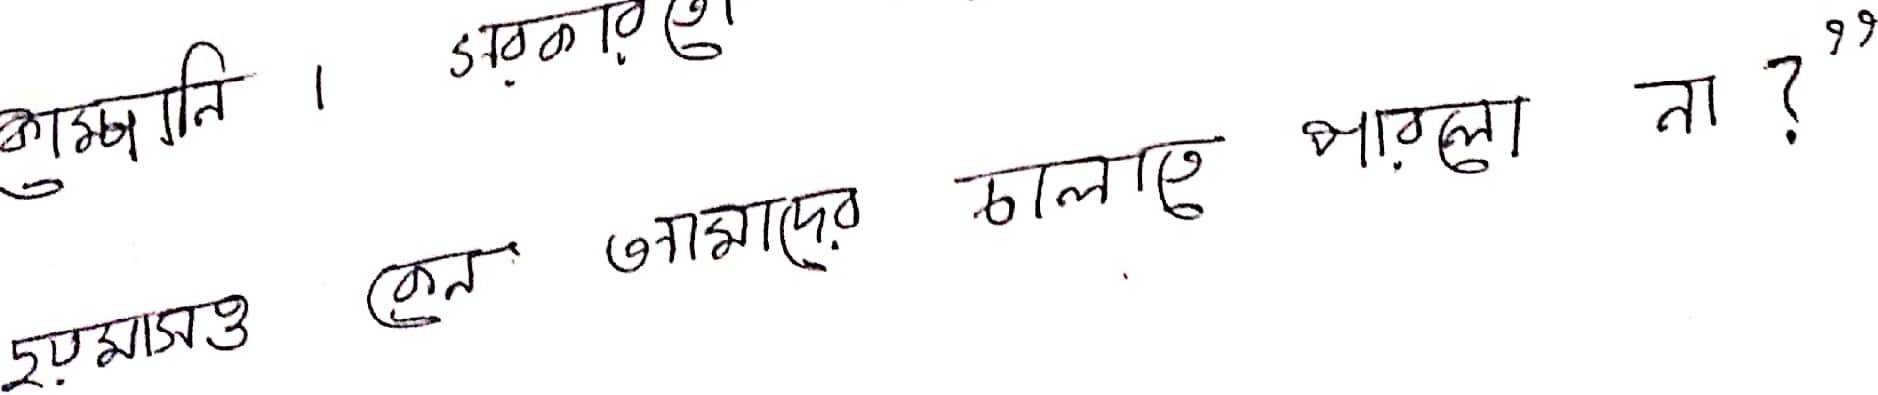 কোম্পানি। সরকার তো
ছয়মাসও কেন আমাদের চালাতে পারলো না?”